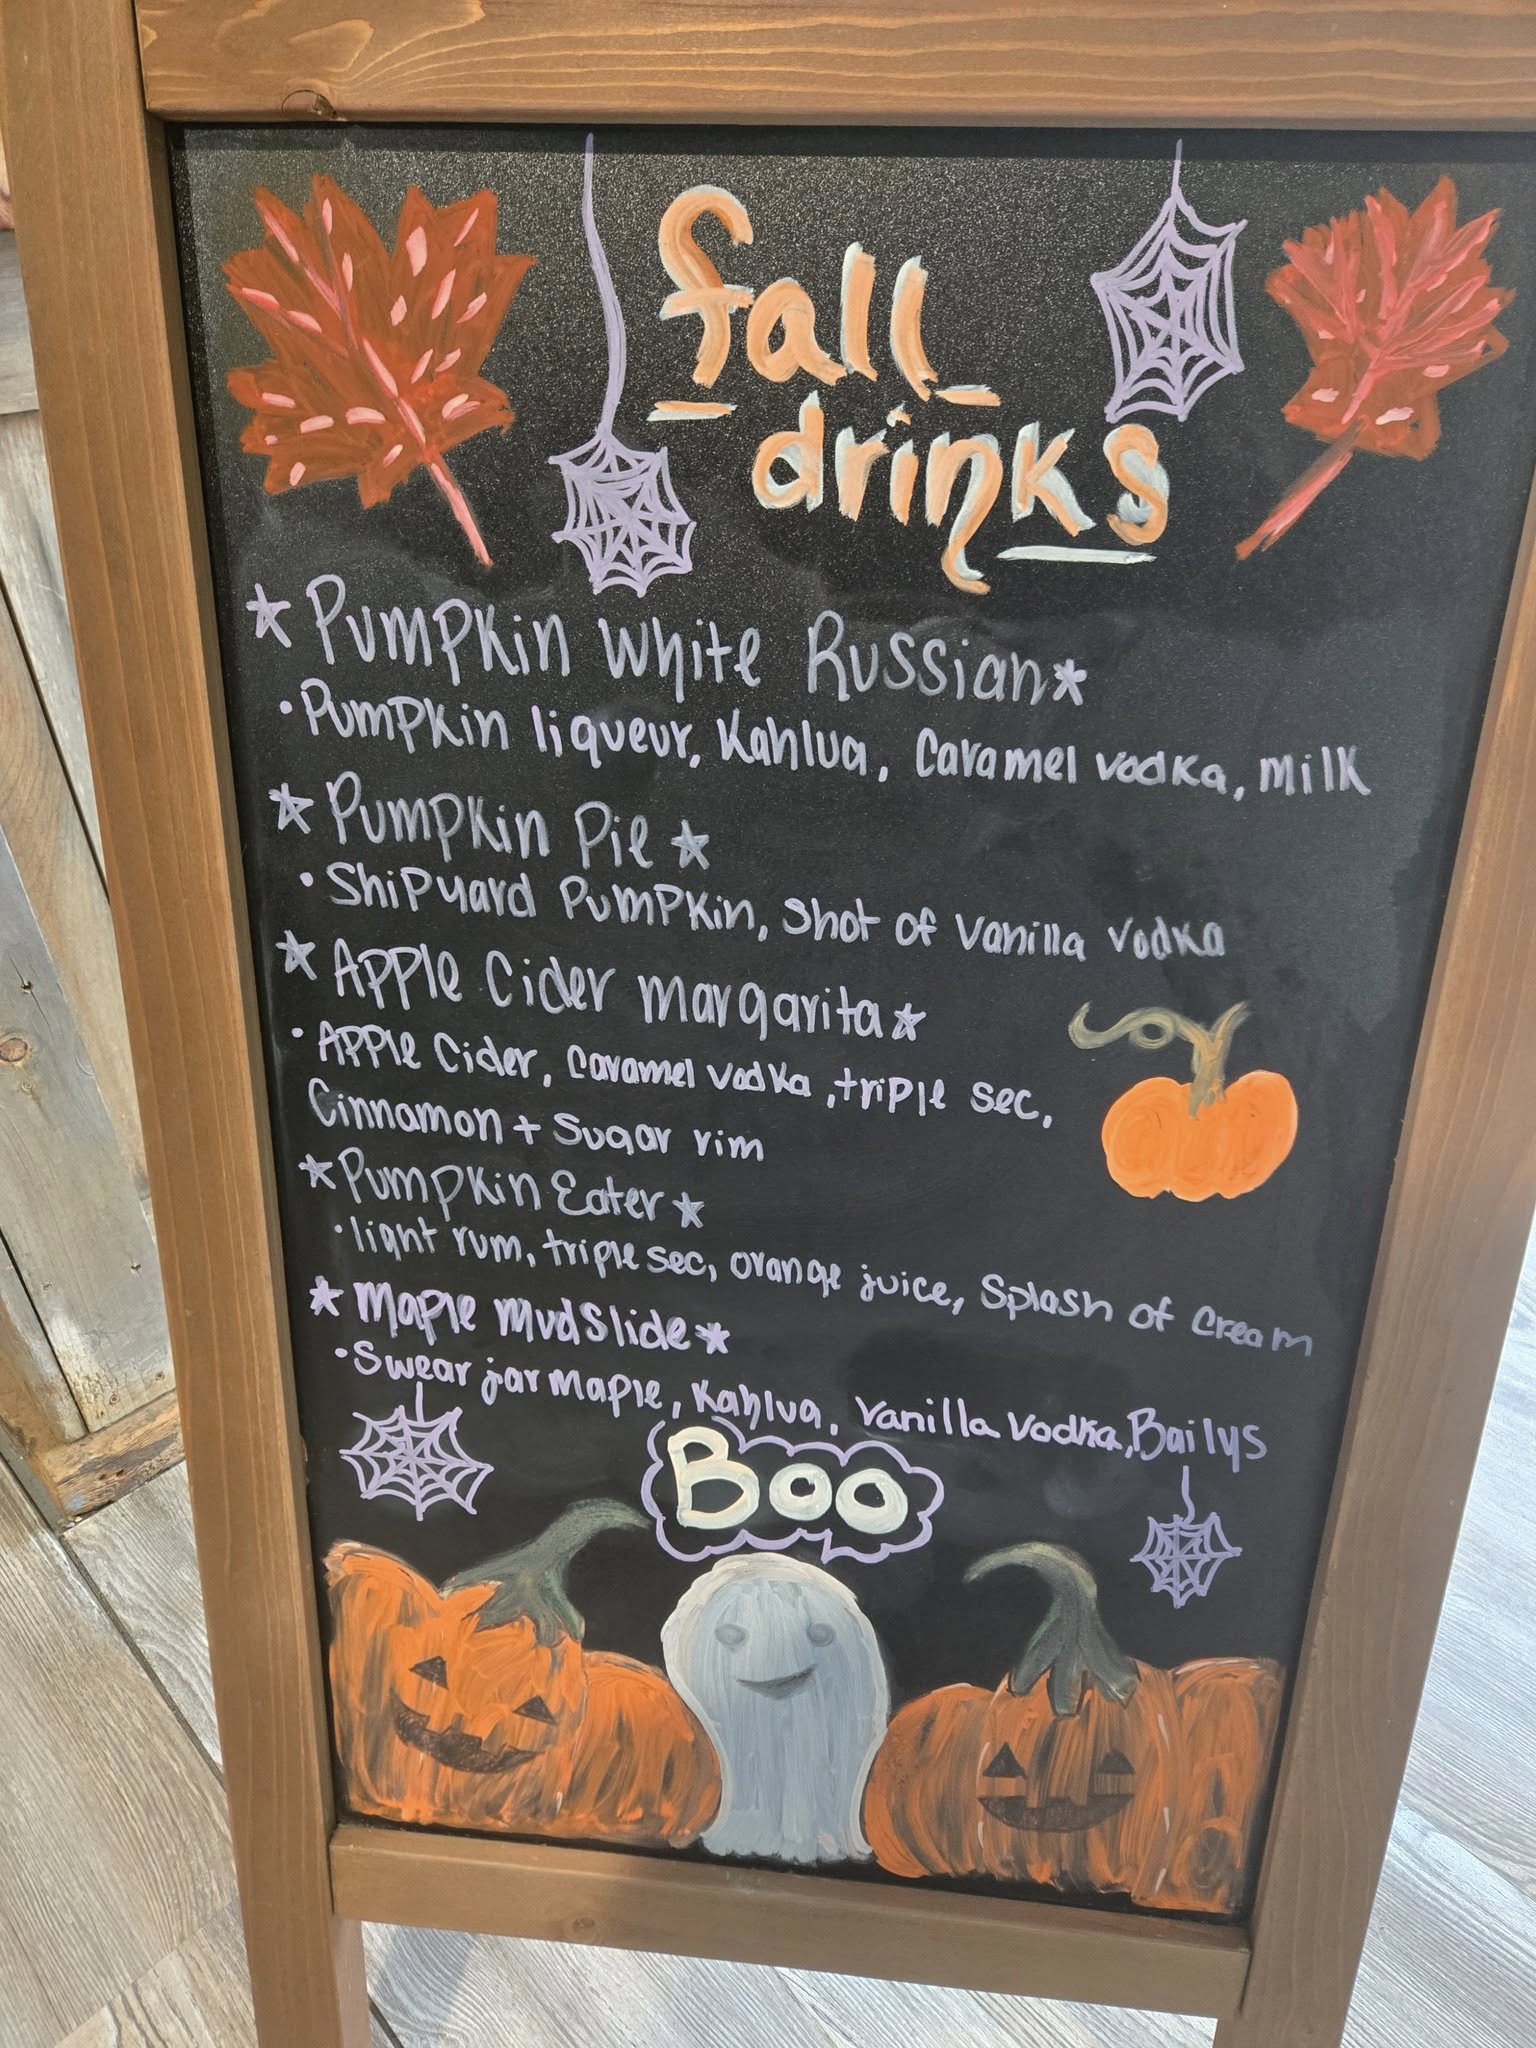 fall
drinks
★ Pumpkin White Russian ★
• Pumpkin liqueur, Kahlua, Caramel vodka, milk
★ Pumpkin Pie ★
• Shipyard Pumpkin, Shot of Vanilla Vodka
★ Apple Cider Margarita ★
• Apple Cider, Caramel vodka, triple sec,
Cinnamon + Sugar rim
★ Pumpkin Eater ★
• light rum, triple sec, orange juice, Splash of cream
★ Maple Mudslide ★
• Swear jar maple, Kahlua, Vanilla Vodka, Bailys
Boo